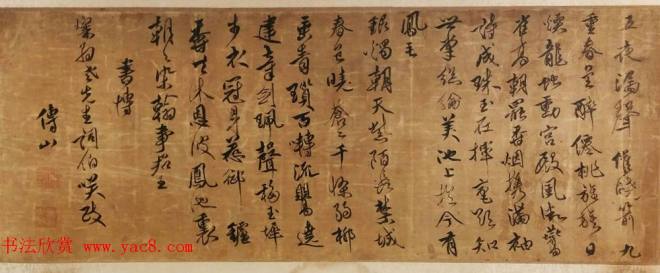 五夜漏聲催曉箭九
重春色醉僊桃旌旗日
煖龍蛇動宮殿風微燕
雀高朝罷香烟攜滿袖
詩成珠玉在揮毫欲知
世掌絲綸美池上於今有
鳳毛
銀燭朝天紫陌長禁城
春色曉蒼蒼千條弱柳
垂青瑣百囀流鶯遶
建章劍珮聲移玉墀
步衣冠身惹御鑪
香共沐恩波鳳池裏
朝朝染翰事君王
書博
先生詞伯咲政
傅山
书法欣赏 www.yac8.com